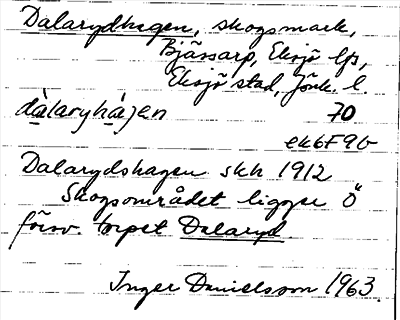 Dalarydhagen, skogsmark,
Bjässarp, Eksjö lfs,
Eksjö stad, Jönk. l.
dàlaryhàgen 70
ek6F9b
Dalarydshagen skh 1912
Skogsområdet ligger Ö
försv. torpet Dalaryd.
Inger Danielsson 1963.